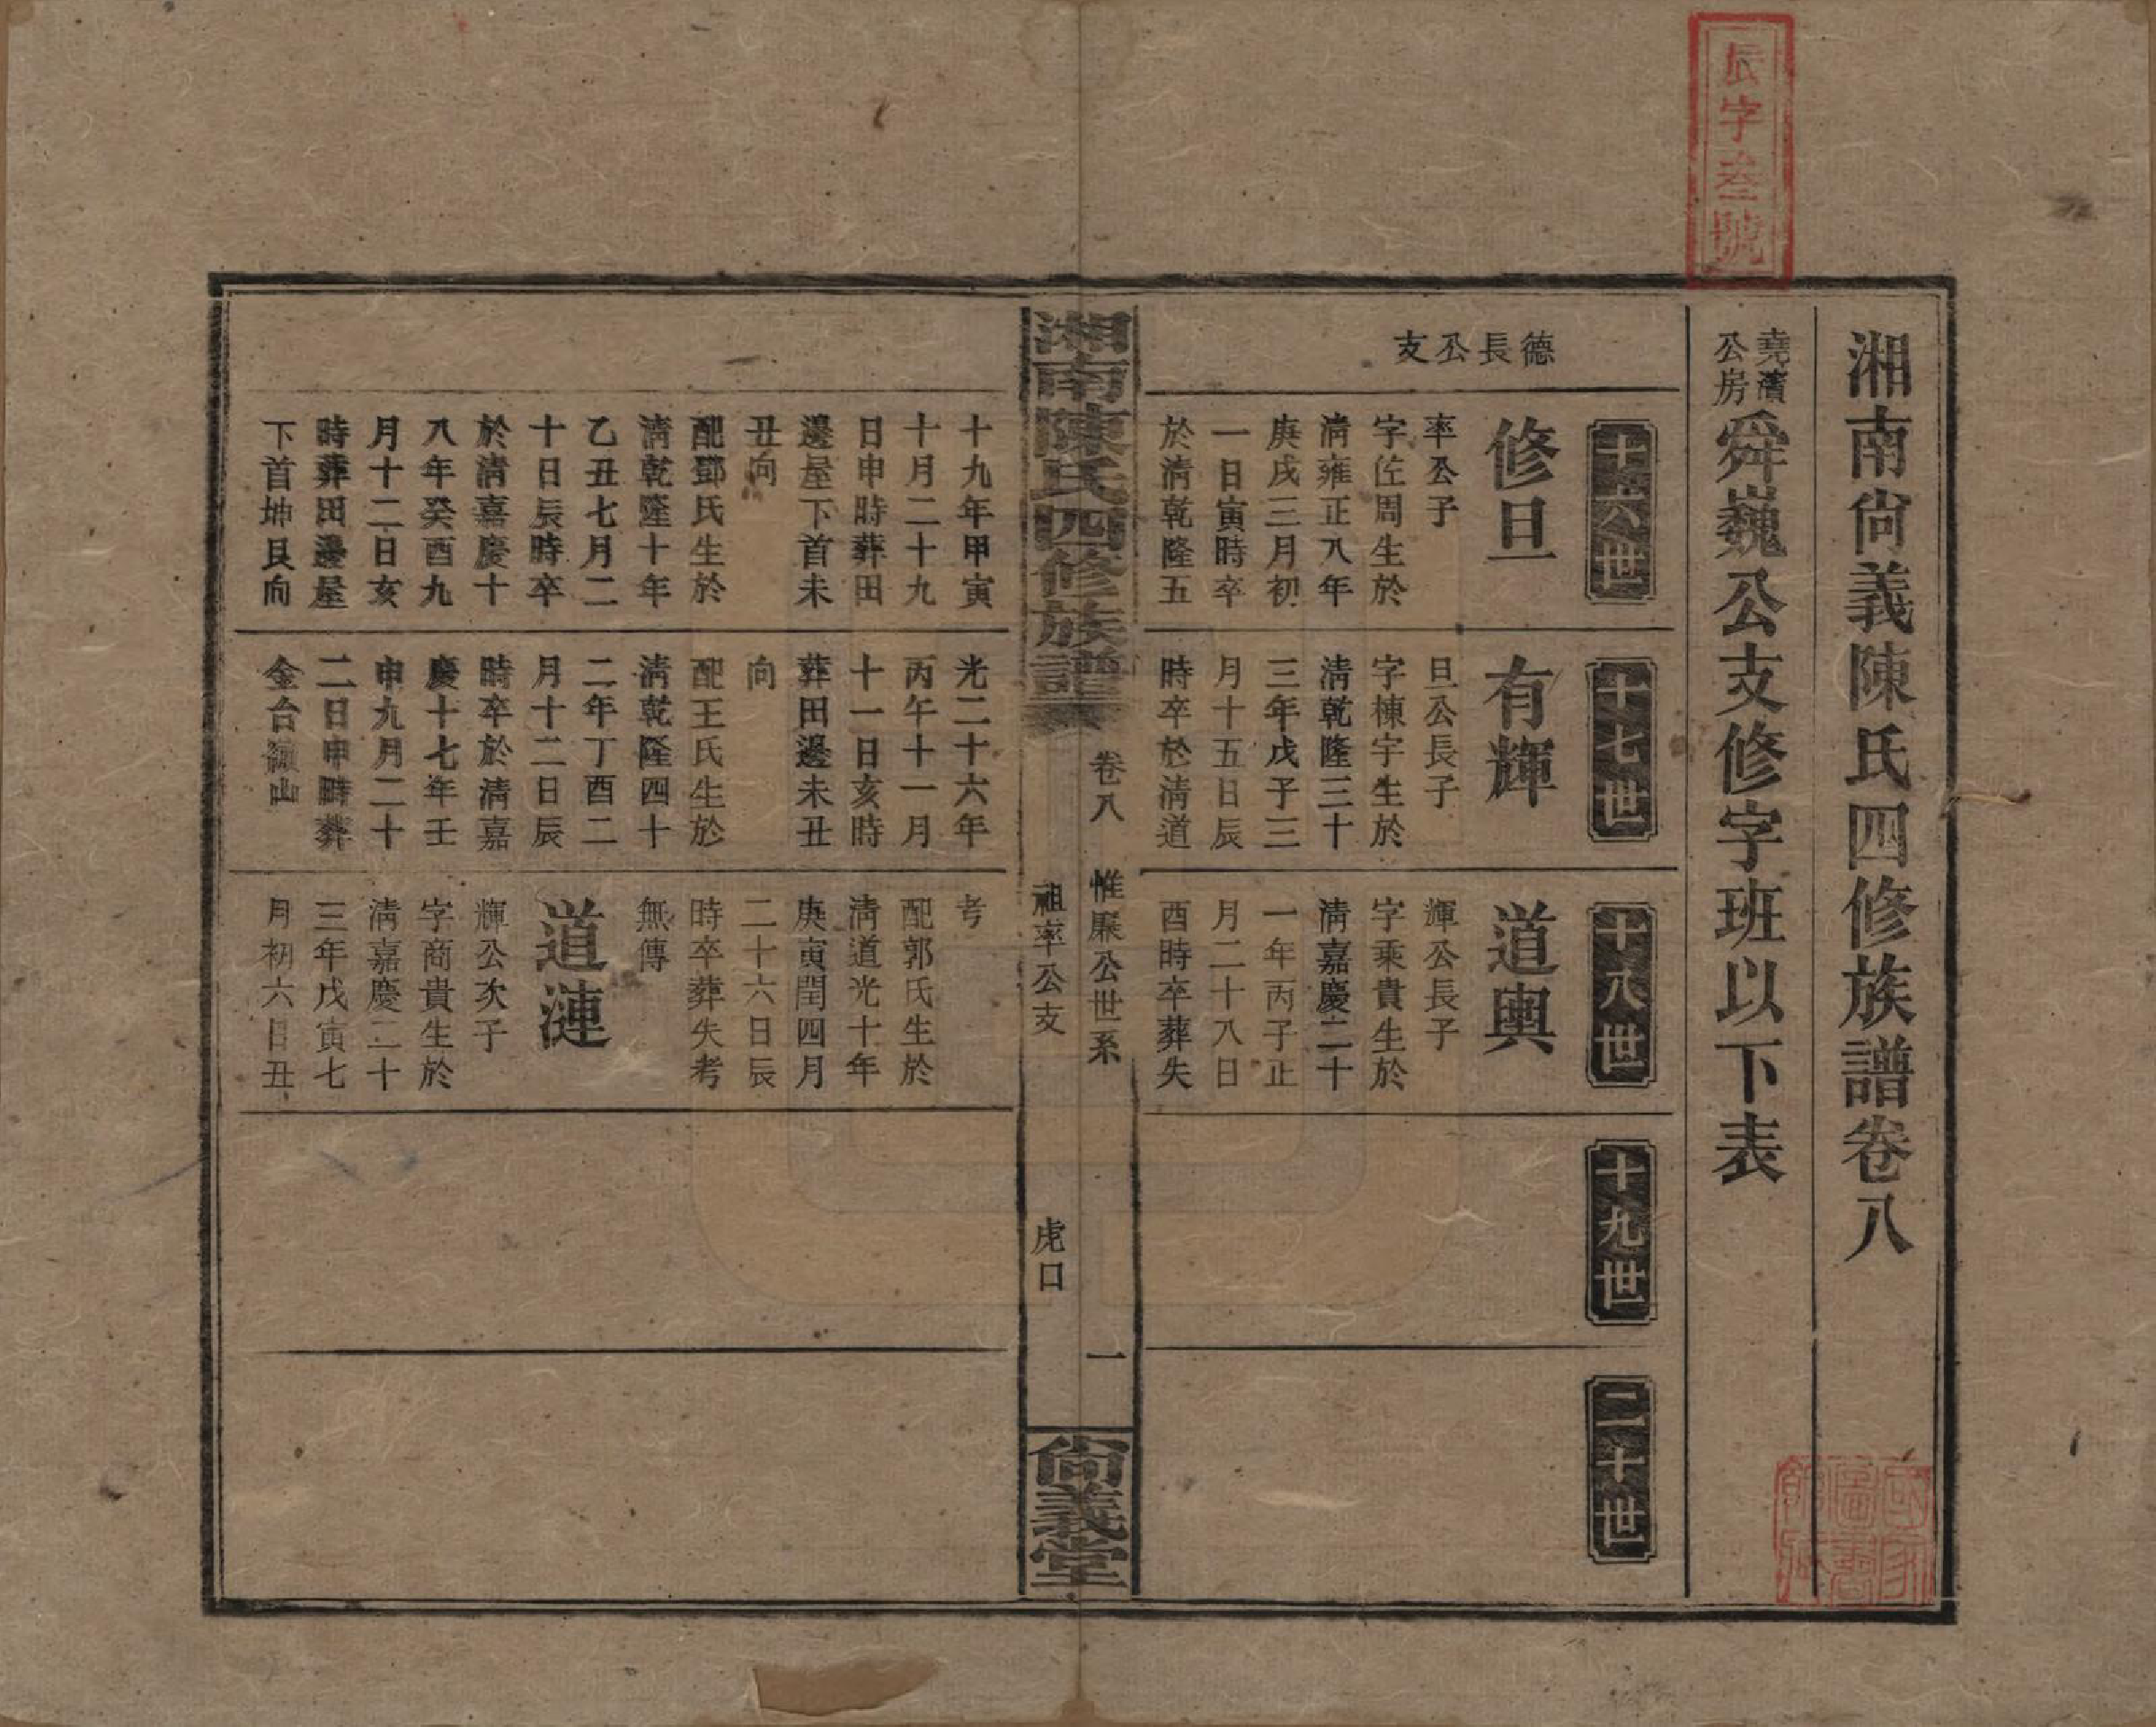 辰字叁號
湘南尙義陳氏四修族譜卷八
堯濱公房舜巍公支修字班以下表
德長公支
十六世
修旦
率公子
字佐周生於
淸雍正八年
庚戌三月初
一日寅時卒
於淸乾隆五
十九年甲寅
十月二十九
日申時葬田
邊屋下首未
丑向
配鄧氏生於
淸乾隆十年
乙丑七月二
十日辰時卒
於淸嘉慶十
八年癸酉九
月十二日亥
時葬田邊屋
下首坤艮向
十七世
有輝
旦公長子
字棟宇生於
淸乾隆三十
三年戊子三
月十五日辰
時卒於淸道
光二十六年
丙午十一月
十一日亥時
葬田邊未丑
向
配王氏生於
淸乾隆四十
二年丁酉二
月十二日辰
時卒於淸嘉
慶十七年壬
申九月二十
二日申時葬
金台嶺山
十八世
道輿
輝公長子
字乘貴生於
淸嘉慶二十
一年丙子正
月二十八日
酉時卒葬失
考
配郭氏生於
淸道光十年
庚寅閏四月
二十六日辰
時卒葬失考
無傳
道漣
輝公次子
字商貴生於
淸嘉慶二十
三年戊寅七
月初六日丑
十九世
二十世
湘南陳氏四修族譜
卷八
惟廉公世系
祖率公支
虎口
一
尙義堂